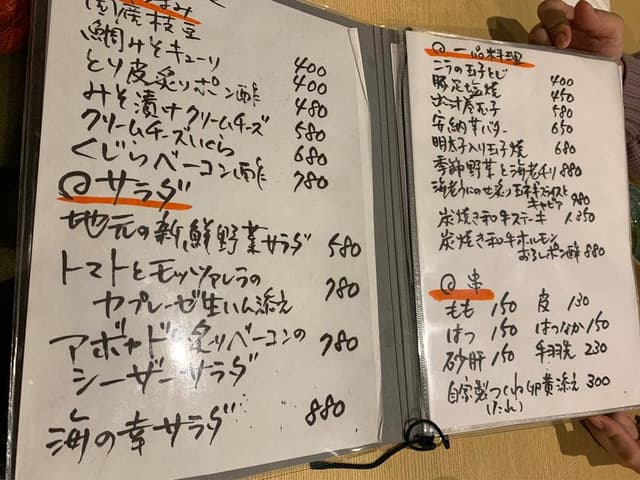 つまみ
国産枝豆 400
鯛みそキューリ 400
とり皮炙りポン酢 480
みそ漬けクリームチーズ 580
クリームチーズいくら 680
くじらベーコン酢 780
◎サラダ
地元の新鮮野菜サラダ 580
トマトとモッツァレラの 780
カプレーゼ生ハム添え
アボカドと炙りベーコンの 780
シーザーサラダ
海の幸サラダ 880
◎一品料理
ニラの玉子とじ 400
豚足塩焼 450
出汁巻玉子 580
安納芋バター 650
明太子入り玉子焼
季節野菜と海老チリ 880
キャビア 980
炭焼き和牛ステーキ 1,350
炭焼き和牛ホルモン
おろしポン酢 880
◎串
もも 150 皮 130
はつ 150 はつなか 150
砂肝 150 手羽先 230
自家製つくね卵黄添え 300
(たれ)